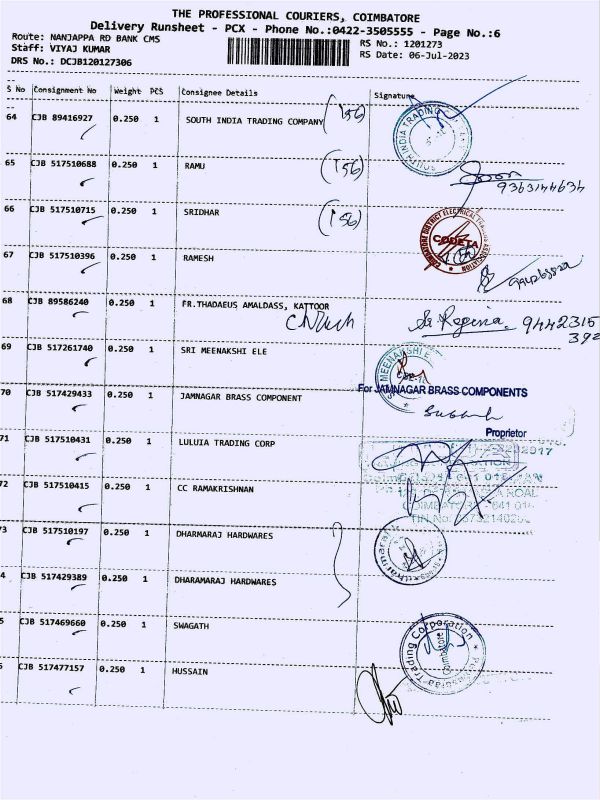 THE PROFESSIONAL COURIERS, COIMBATORE
Delivery Runsheet - PCX - Phone No.:0422-3505555 - Page No.:6
Route: NANJAPPA RD BANK CMS
RS No.: 1201273
Staff: VIYAJ KUMAR
RS Date: 06-Jul-2023
DRS No.: DCJB120127306
S No Consignment No Weight PCS Consignee Details Signature
64 CJB 89416927 0.250 1 SOUTH INDIA TRADING COMPANY (156)
65 CJB 517510688 0.250 1 RAMU (156)
9363144634
66 CJB 517510715 0.250 1 SRIDHAR (156)
CODETA
67 CJB 517510396 0.250 1 RAMESH
68 CJB 89586240 0.250 1 FR.THADAEUS AMALDASS, KATTOOR
Church Sr Regina. 9442315
392
69 CJB 517261740 0.250 1 SRI MEENAKSHI ELE
70 CJB 517429433 0.250 1 JAMNAGAR BRASS COMPONENT
For JAMNAGAR BRASS COMPONENTS
Proprietor
71 CJB 517510431 0.250 1 LULUIA TRADING CORP
72 CJB 517510415 0.250 1 CC RAMAKRISHNAN
73 CJB 517510197 0.250 1 DHARMARAJ HARDWARES
4 CJB 517429389 0.250 1 DHARAMARAJ HARDWARES
5 CJB 517469660 0.250 1 SWAGATH
Trading Corporation
Coimbatore
CJB 517477157 0.250 1 HUSSAIN